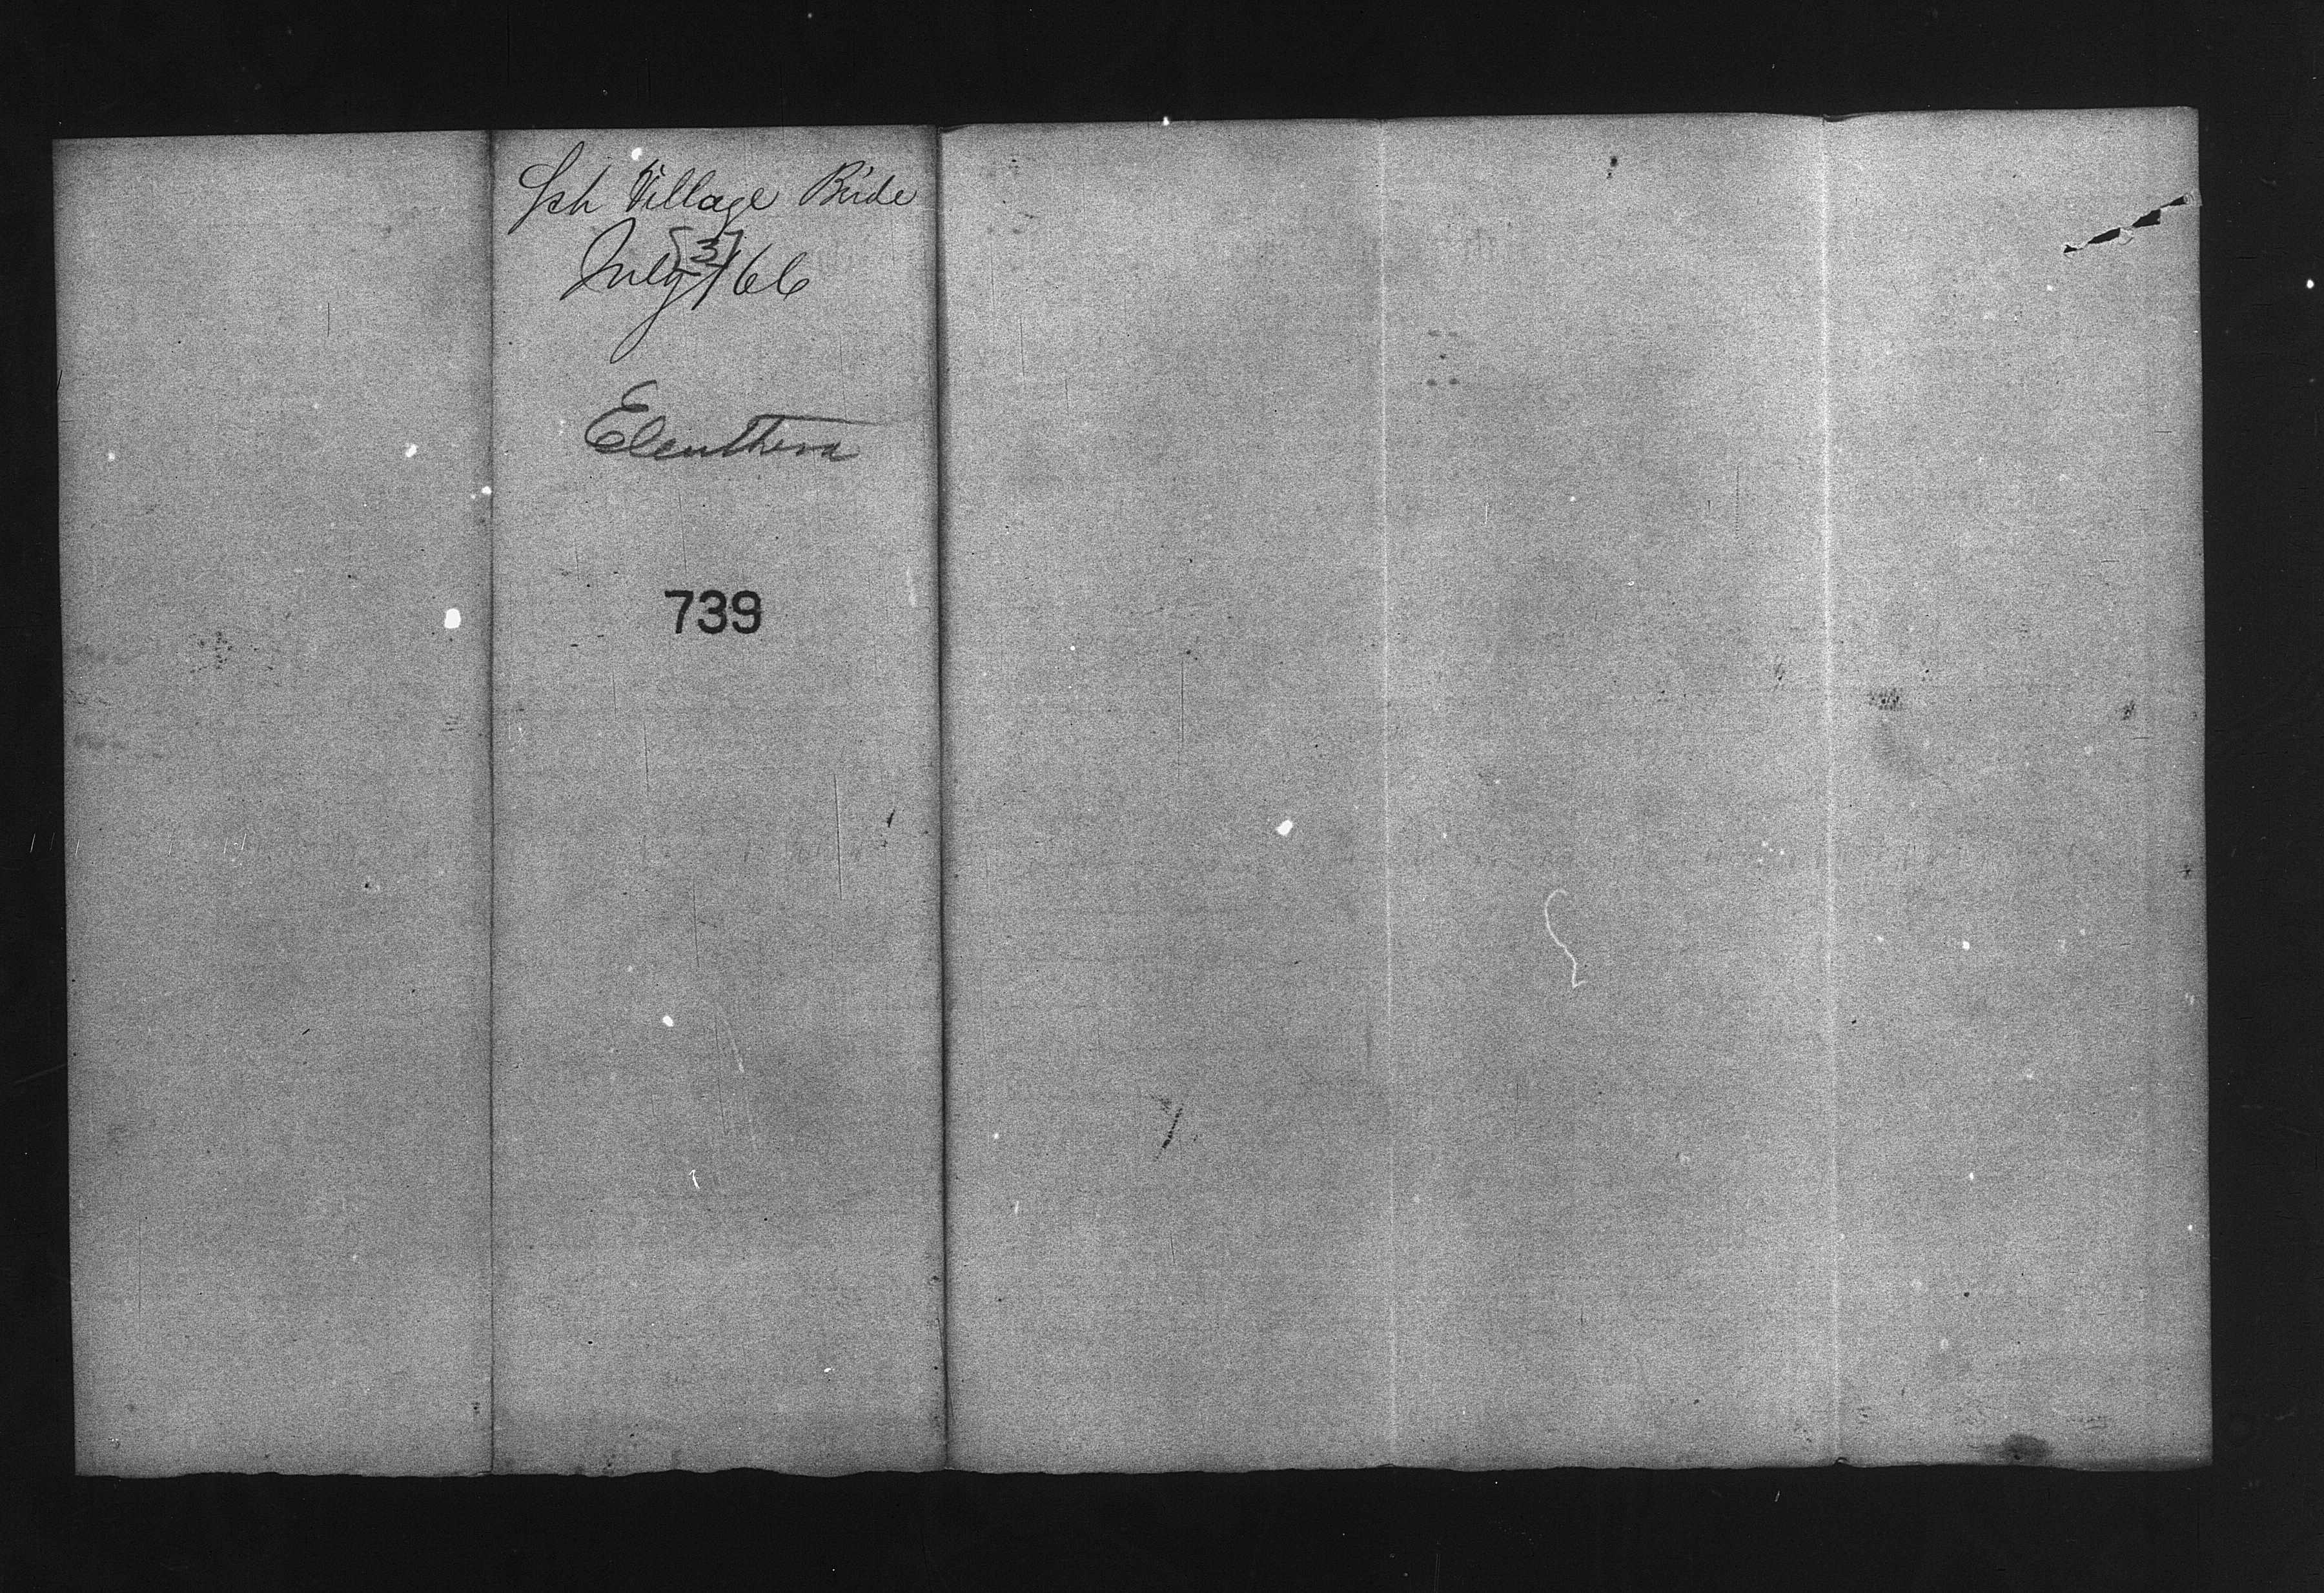 Sch Village Bride
July [3]/66
Eleuthera
739